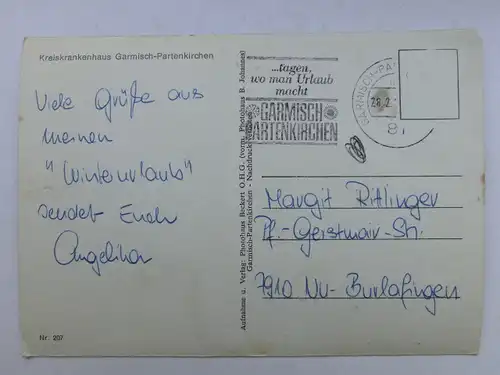 Kreiskrankenhaus Garmisch-Partenkirchen
Viele Grüße aus
meinen
"Winterurlaub"
sendet Euch
Angelika
Nr. 207
Aufnahme u. Verlag: Photohaus Beckert O.H.G. (vorm. Photohaus B. Johannes)
Garmisch-Partenkirchen - Nachdruck verboten
...tagen,
wo man Urlaub
macht
GARMISCH
PARTENKIRCHEN
GARMISCH-PA
28.2.
Margit Ritlinger
Pf.-Gerstmair-Str.
7910 NU-Burlafingen